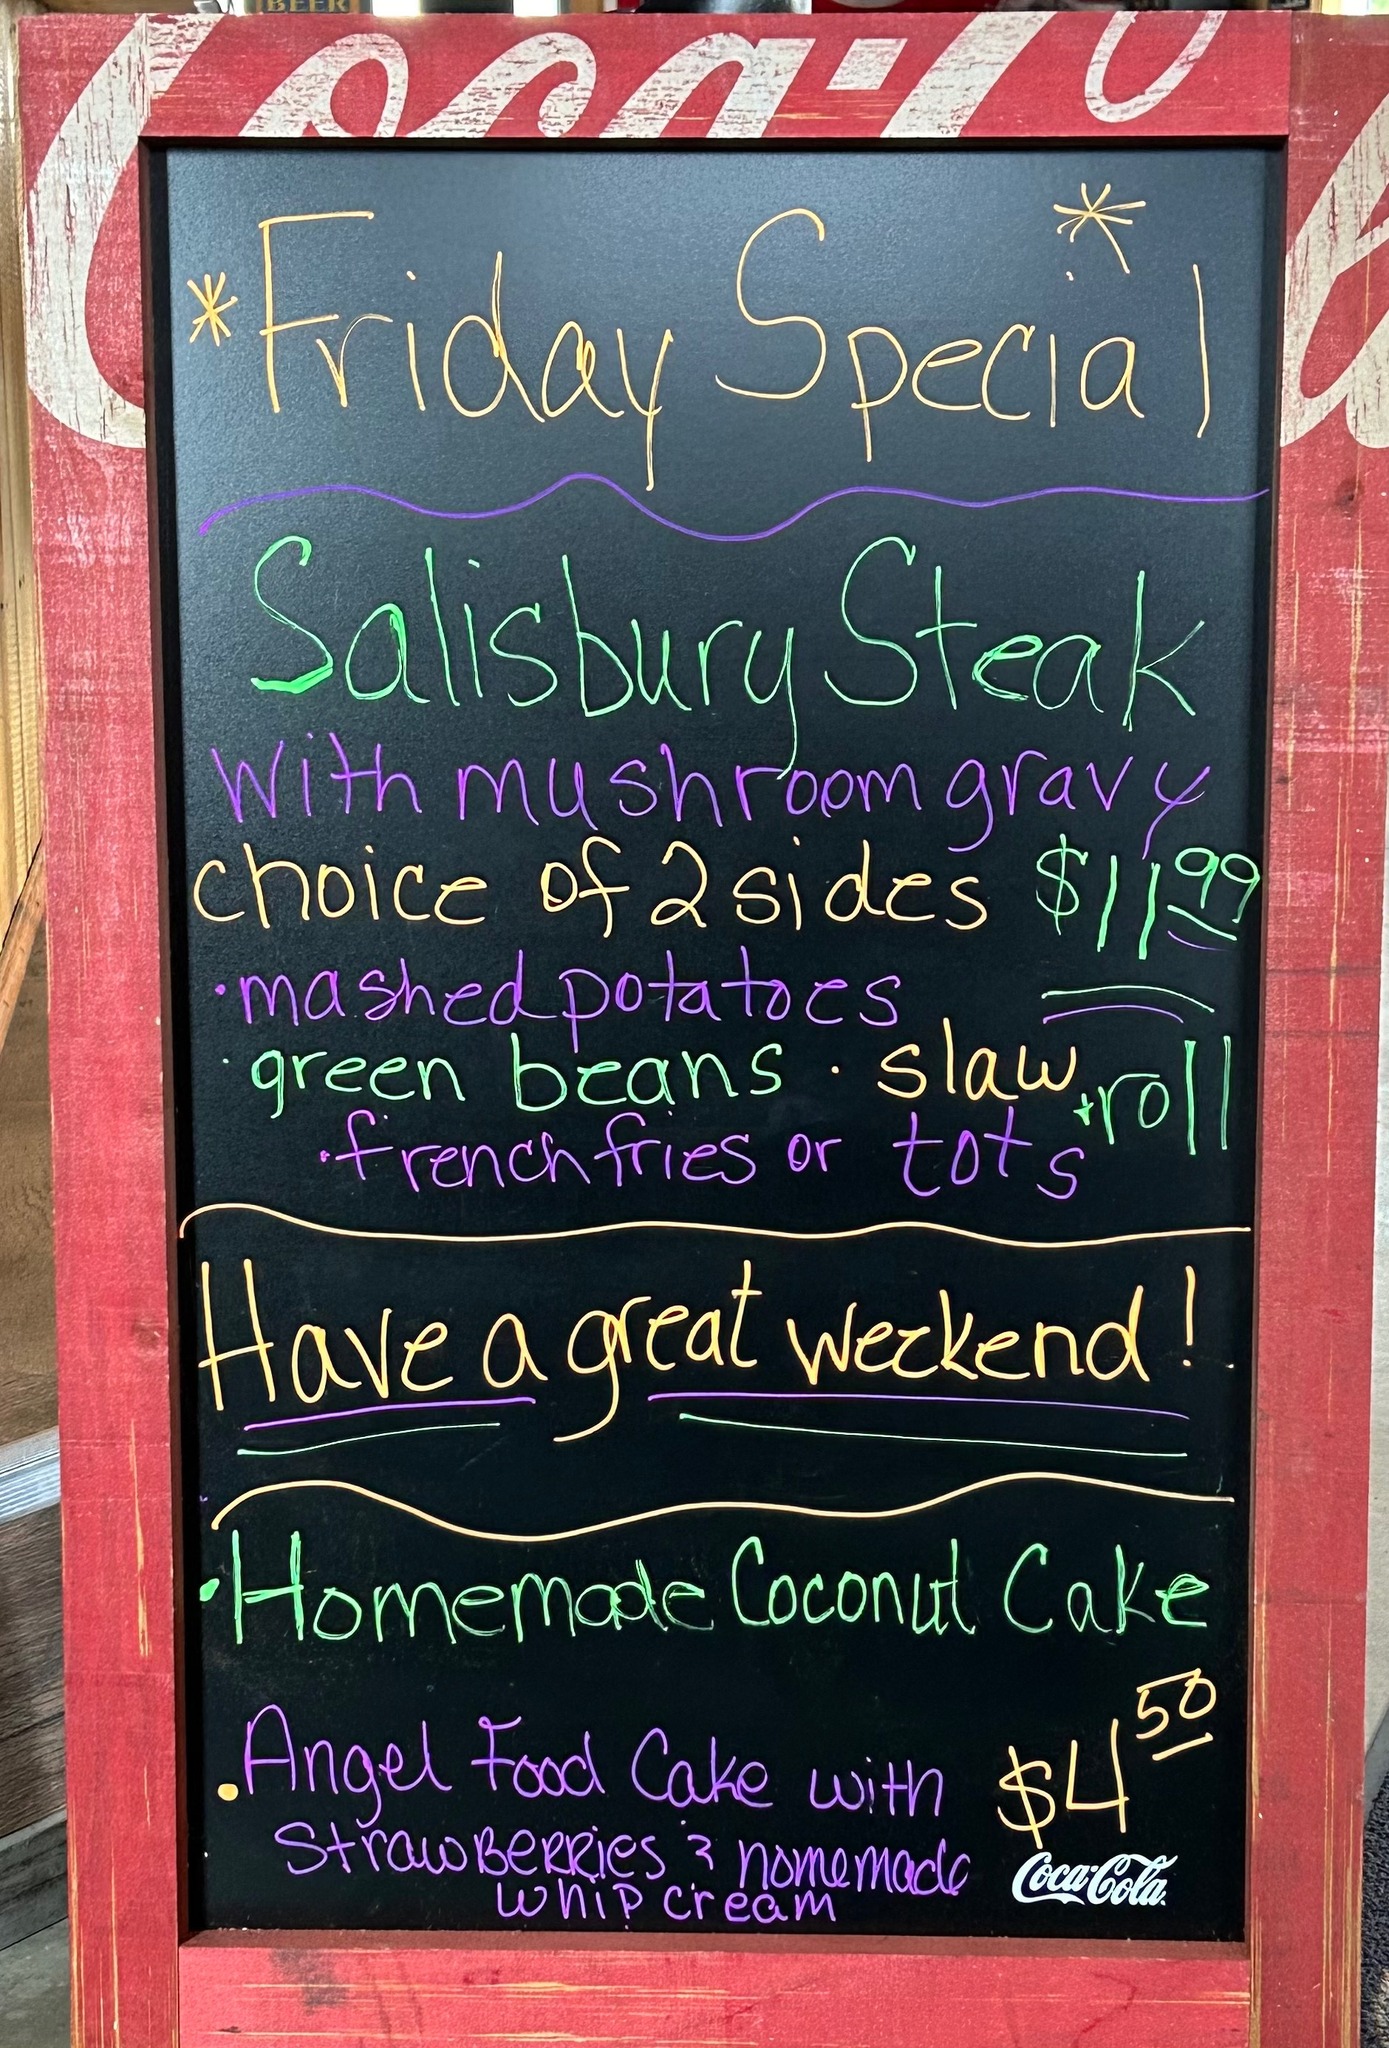 BEER
Coca-Co
*Friday Special*
Salisbury Steak
with mushroom gravy
choice of 2 sides $11 99
· mashed potatoes
· green beans · slaw + roll
· french fries or tots
Have a great weekend!
· Homemade Coconut Cake
· Angel Food Cake with $4 50
StrawBERRies & homemade
whip cream
Coca-Cola